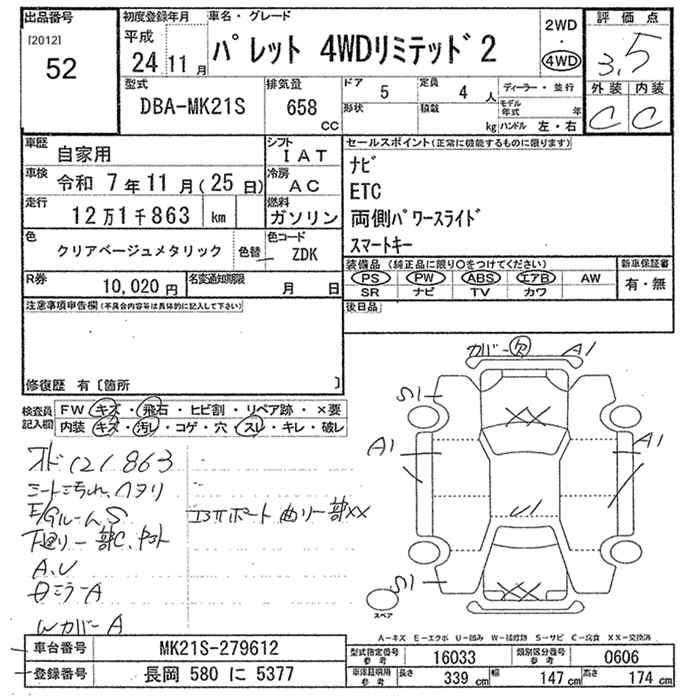 出品番号 初度登録年月 車名・グレード 2WD 評価点
[2012] 平成
52 24 11月 パレット 4WDリミテッド2 4WD 3.5
型式 排気量 ドア 5 定員 4人 ディーラー・並行 外装 内装
DBA-MK21S 658 cc 形状 積載 kg モデル年式 年 C C
ハンドル 左・右
車歴 自家用 シフト IAT セールスポイント(正常に機能するものに限ります)
車検 令和 7年 11月(25日) 冷房 AC ナビ
走行 12万1千863 km 燃料 ガソリン ETC
両側パワースライド
色 クリアベージュメタリック 色替 色コード ZDK スマートキー
R券 10,020円 名変通知期限 月 日 装備品(純正品に限り○をつけてください) 新車保証書
PS PW ABS エアB AW 有・無
SR ナビ TV カワ
注意事項申告欄(不具合内容等は具体的に記入して下さい) 後日品
修復歴 有〔箇所 〕
検査員記入欄 FW キズ・飛石・ヒビ割・リペア跡・×要
内装 キズ・汚レ・コゲ・穴・スレ・キレ・破レ
カバー欠 A1
S1
A1 A1
XX
U1
S1
XX
スペア
オド 121.863
シート汚れ、ヘタリ
E/GルームS
下廻リ一部C、
A、U
ミラーA
WカバーA
コアサポート曲リ一部XX
A-キズ E-エクボ U-凹み W-補修跡 S-サビ C-腐食 XX-交換済
車台番号 MK21S-279612 型式指定番号 参考 16033 類別区分番号 参考 0606
登録番号 長岡 580 に 5377 車庫証明用 参考 長さ 339 cm 幅 147 cm 高さ 174 cm